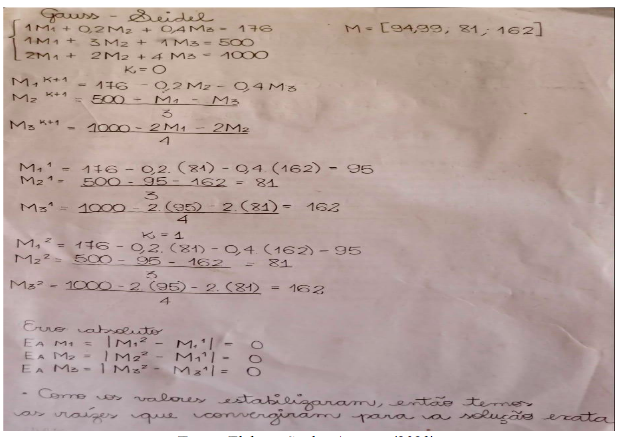 Gauss - Seidel
1M1 + 0,2M2 + 0,4M3 = 176 M = [94,99, 81, 162]
1M1 + 3M2 + 1M3 = 500
2M1 + 2M2 + 4M3 = 1000
K = 0
M1 K+1 = 176 - 0,2M2 - 0,4M3
M2 K+1 = 500 - M1 - M3
3
M3 K+1 = 1000 - 2M1 - 2M2
4
M1¹ = 176 - 0,2.(81) - 0,4.(162) = 95
M2¹ = 500 - 95 - 162 = 81
3
M3¹ = 1000 - 2.(95) - 2.(81) = 162
4
K = 1
M1² = 176 - 0,2.(81) - 0,4.(162) - 95
M2² = 500 - 95 - 162 = 81
3
M3² = 1000 - 2.(95) - 2.(81) = 162
4
Erro absoluto
EA M1 = |M1² - M1¹| = 0
EA M2 = |M2² - M1¹| = 0
EA M3 = |M3² - M3¹| = 0
- Como os valores estabilizaram, então temos
as raízes que convergiram para a solução exata